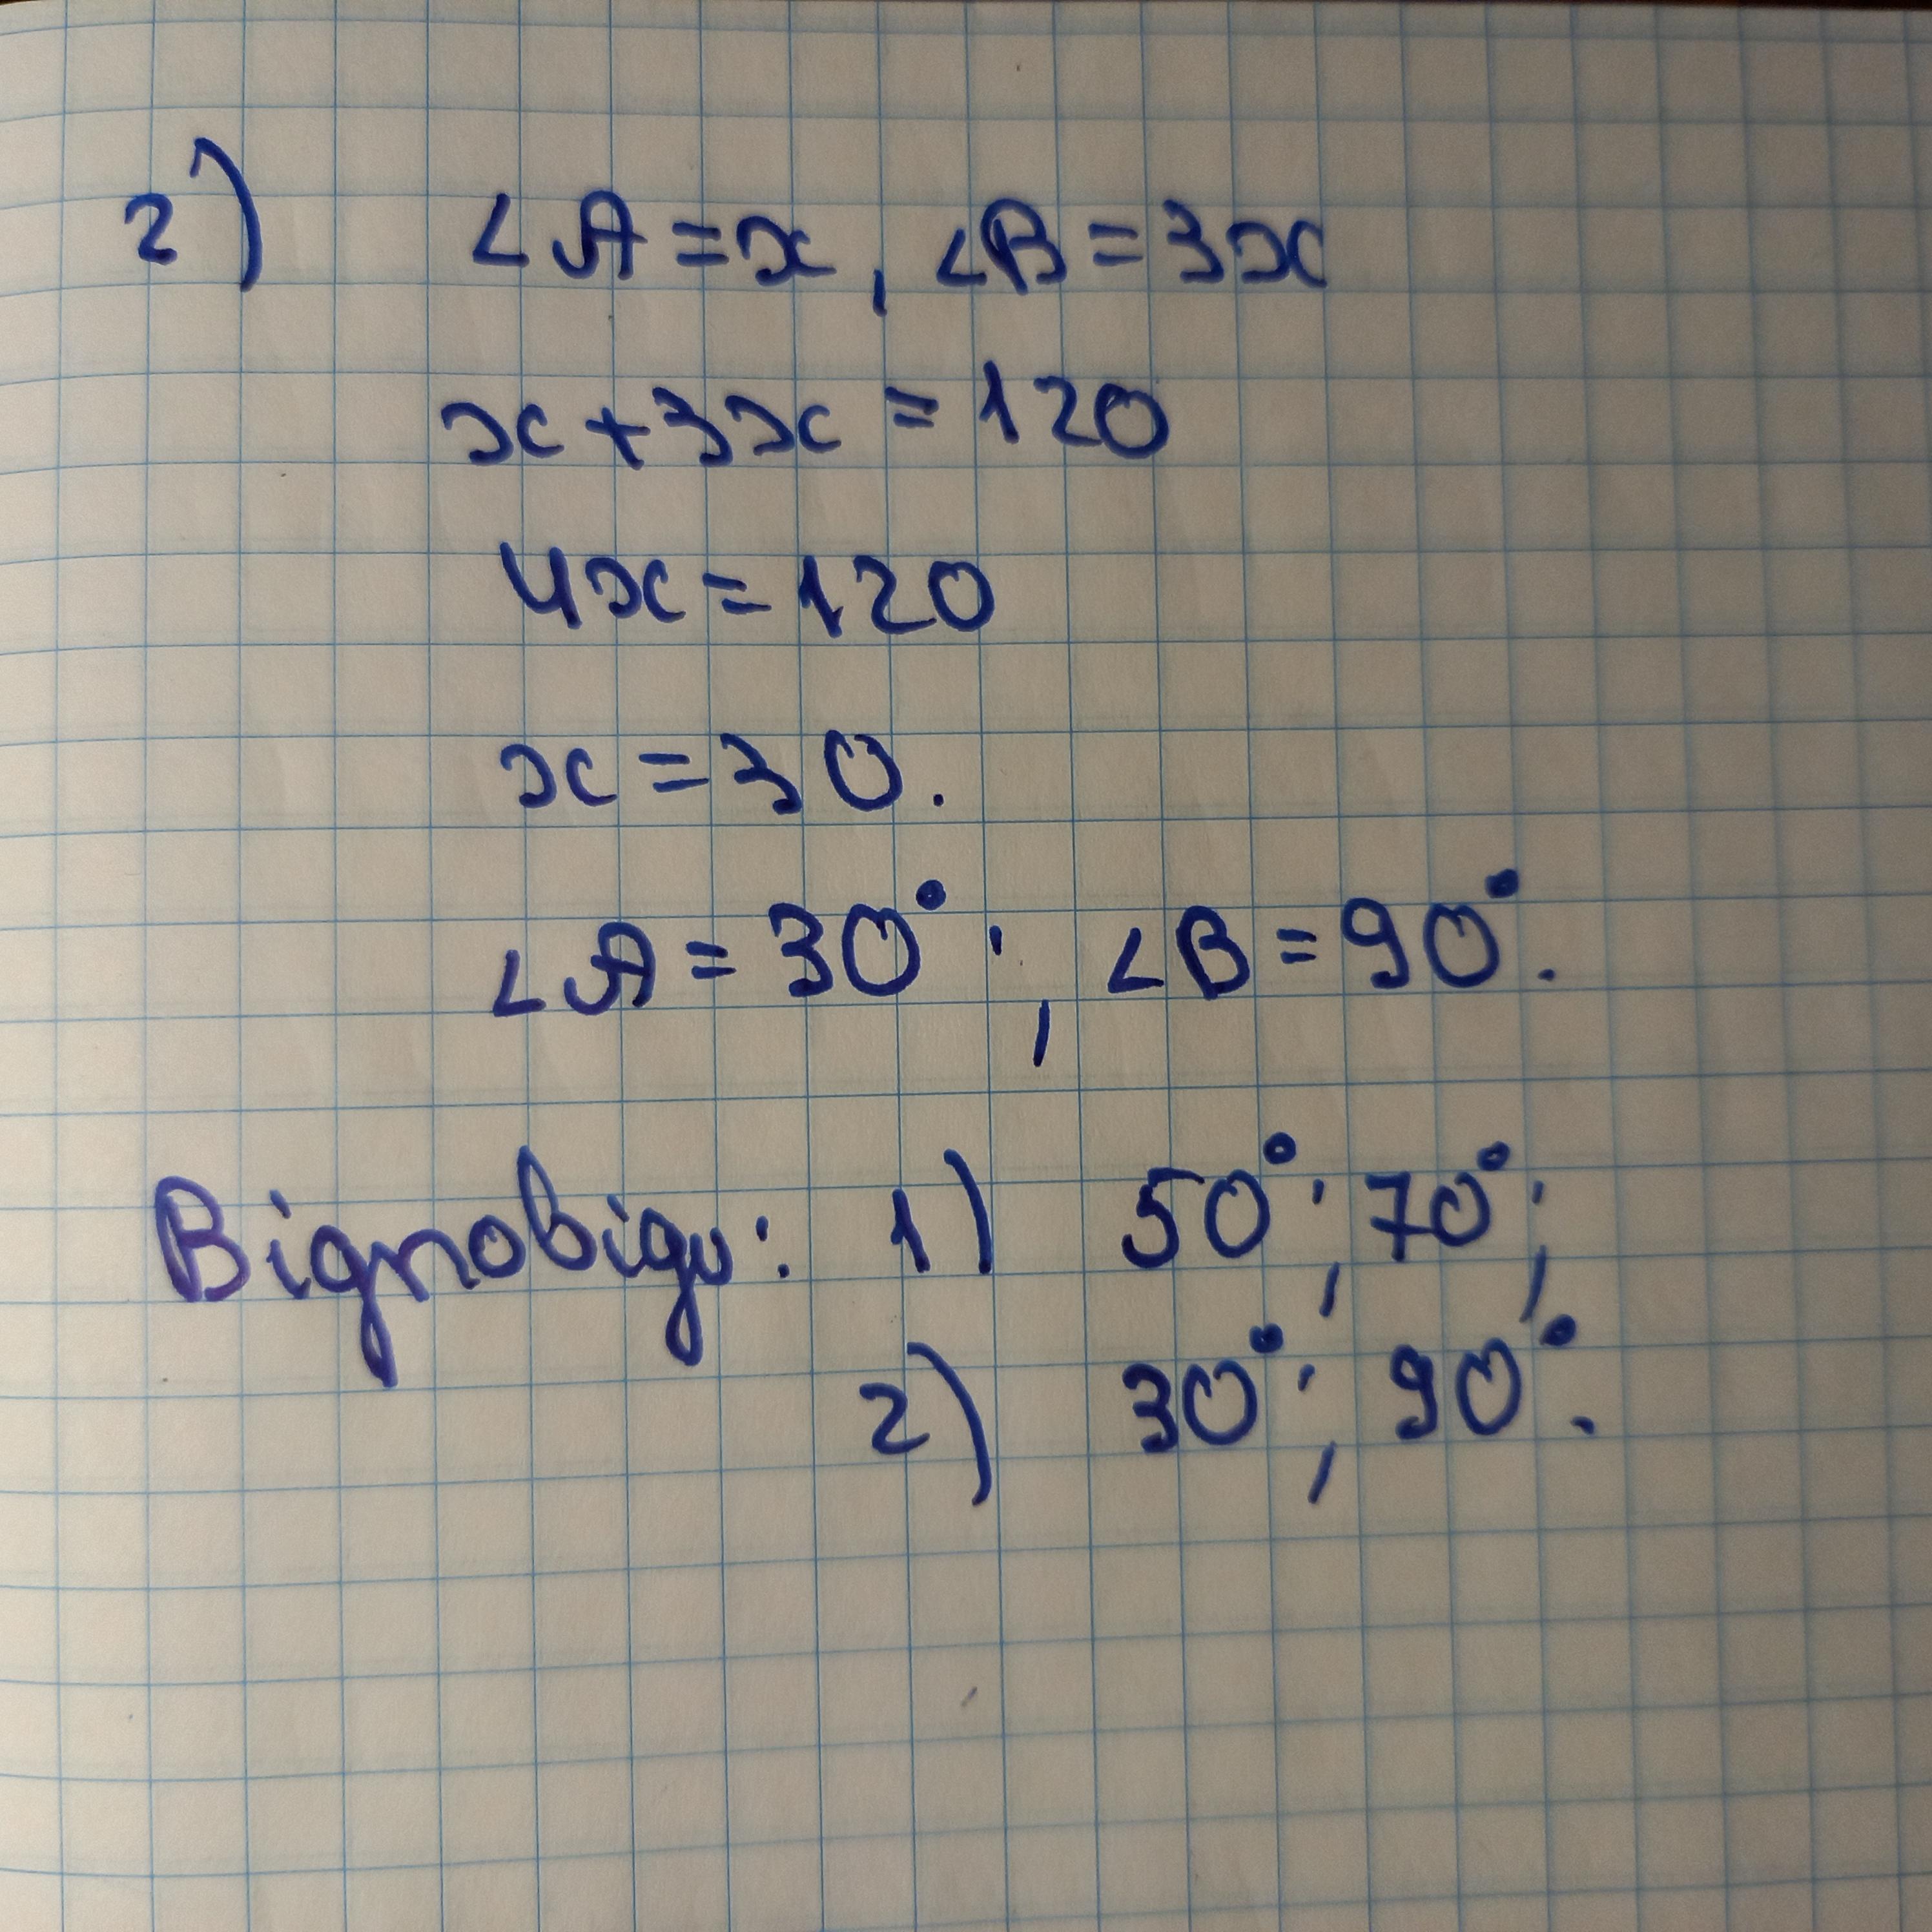 2) ∠A = x, ∠B = 3x
x + 3x = 120
4x = 120
x = 30.
∠A = 30°; ∠B = 90°.
Відповідь: 1) 50°; 70°;
2) 30°; 90°.